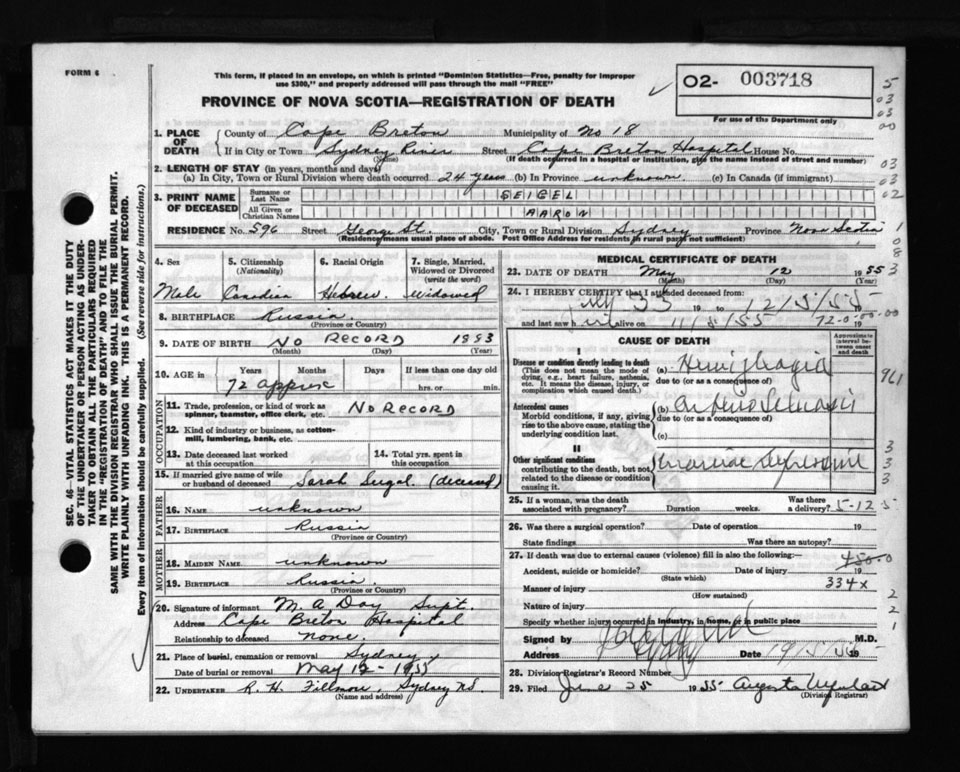 FORM 6
This form, if placed in an envelope, on which is printed "Dominion Statistics—Free, penalty for improper
use $300," and properly addressed will pass through the mail "FREE"
PROVINCE OF NOVA SCOTIA—REGISTRATION OF DEATH
02- 003718
For use of the Department only
5
03
03
00
03
03
02
1
0
8
3
1. PLACE OF DEATH
County of Cape Breton Municipality of No 18
If in City or Town Sydney River Street Cape Breton Hospital House No.
(Name) (If death occurred in a hospital or institution, give the name instead of street and number)
2. LENGTH OF STAY (in years, months and days)
(a) In City, Town or Rural Division where death occurred 24 years (b) In Province unknown (c) In Canada (if immigrant)
3. PRINT NAME OF DECEASED
Surname or Last Name SEIGEL
All Given or Christian Names AARON
RESIDENCE No. 596 Street George St. City, Town or Rural Division Sydney Province Nova Scotia
(Residence means usual place of abode. Post Office Address for residents in rural parts not sufficient)
4. Sex 5. Citizenship (Nationality) 6. Racial Origin 7. Single, Married, Widowed or Divorced (write the word)
Male Canadian Hebrew Widowed
8. BIRTHPLACE Russia
(Province or Country)
9. DATE OF BIRTH NO RECORD 1883
(Month) (Day) (Year)
10. AGE in Years Months Days If less than one day old
72 approx hrs. or min.
OCCUPATION
11. Trade, profession, or kind of work as spinner, teamster, office clerk, etc. NO RECORD
12. Kind of industry or business, as cotton-mill, lumbering, bank, etc.
13. Date deceased last worked at this occupation
14. Total yrs. spent in this occupation
15. If married give name of wife or husband of deceased Sarah Seigal (deceased)
FATHER
16. NAME unknown
17. BIRTHPLACE Russia
(Province or Country)
MOTHER
18. MAIDEN NAME unknown
19. BIRTHPLACE Russia.
(Province or Country)
20. Signature of informant M. A. Day Supt.
Address Cape Breton Hospital
Relationship to deceased none.
21. Place of burial, cremation or removal Sydney
Date of burial or removal May 12 - 1955
22. UNDERTAKER R. H. Fillmore, Sydney NS.
(Name and address)
MEDICAL CERTIFICATE OF DEATH
23. DATE OF DEATH May 12 1955
(Month) (Day)
24. I HEREBY CERTIFY that I attended deceased from:
19 to 12/5/55
and last saw h alive on 11/5/55 19
72-0-00-00
CAUSE OF DEATH
Approximate interval between onset and death
I
Disease or condition directly leading to death
(This does not mean the mode of dying, e.g., heart failure, asthenia, etc. It means the disease, injury, or complication which caused death.)
(a) Hemiplegia
due to (or as a consequence of)
961
Antecedent causes
Morbid conditions, if any, giving rise to the above cause, stating the underlying condition last.
(b)
due to (or as a consequence of)
(c)
II
Other significant conditions
contributing to the death, but not related to the disease or condition causing it.
3
3
3
25. If a woman, was the death associated with pregnancy? Duration weeks. Was there a delivery?
5-12-5
26. Was there a surgical operation? Date of operation 19
State findings Was there an autopsy?
27. If death was due to external causes (violence) fill in also the following:—
Accident, suicide or homicide? Date of injury 19
(State which)
450-0
Manner of injury 334x
(How sustained)
Nature of injury
2
2
1
Specify whether injury occurred in industry, in home, or in public place
Signed by M.D.
Address Sydney Date
28. Division Registrar's Record Number
29. Filed June 25 1955 Augusta
(Division Registrar)
SEC. 46—VITAL STATISTICS ACT MAKES IT THE DUTY
OF THE UNDERTAKER OR PERSON ACTING AS UNDER-
TAKER TO OBTAIN ALL THE PARTICULARS REQUIRED
IN THE "REGISTRATION OF DEATH" AND TO FILE THE
SAME WITH THE DIVISION REGISTRAR WHO SHALL ISSUE THE BURIAL PERMIT.
WRITE PLAINLY WITH UNFADING INK. THIS IS A PERMANENT RECORD.
Every item of information should be carefully supplied. (See reverse side for instructions.)